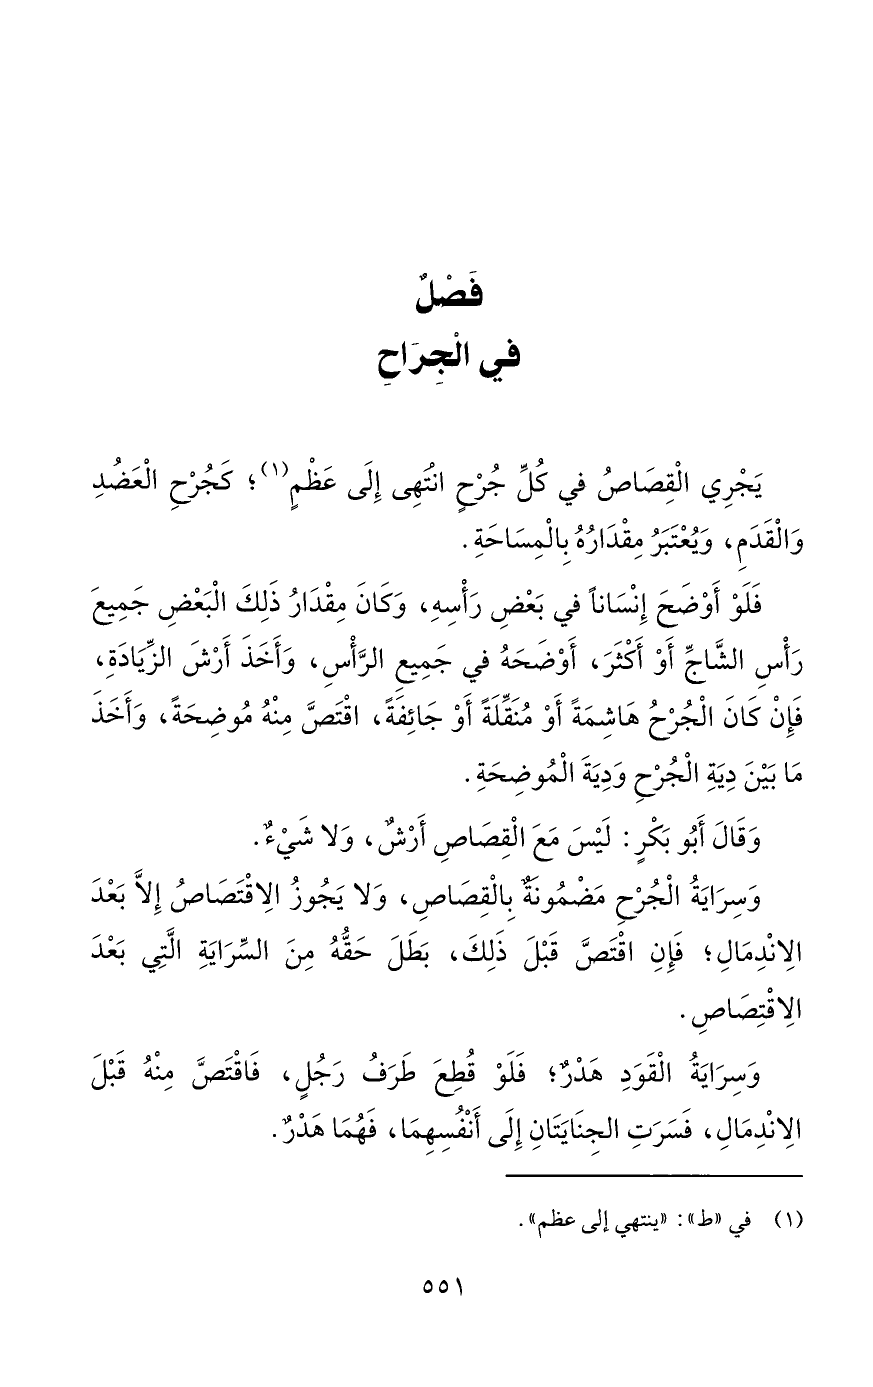 فَصْلٌ
في الْجِرَاحِ
يَجْرِي الْقِصَاصُ في كُلِّ جُرْحٍ انْتَهِى إِلَى عَظْمٍ(١)؛ كَجُرْحِ الْعَضُدِ
وَالْقَدَمِ، وَيُعْتَبَرُ مِقْدَارُهُ بِالْمِسَاحَةِ.
فَلَوْ أَوْضَحَ إِنْسَاناً في بَعْضِ رَأْسِهِ، وَكَانَ مِقْدَارُ ذَلِكَ الْبَعْضِ جَمِيعَ
رَأْسِ الشَّاجِّ أَوْ أَكْثَرَ، أَوْضَحَهُ في جَمِيعِ الرَّأْسِ، وَأَخَذَ أَرْشَ الزِّيَادَةِ،
فَإِنْ كَانَ الْجُرْحُ هَاشِمَةً أَوْ مُنَقِّلَةً أَوْ جَائِفَةً، اقْتَصَّ مِنْهُ مُوضِحَةً، وَأَخَذَ
مَا بَيْنَ دِيَةِ الْجُرْحِ وَدِيَةَ الْمُوضِحَةِ.
وَقَالَ أَبُو بَكْرٍ: لَيْسَ مَعَ الْقِصَاصِ أَرْشٌ، وَلا شَيْءٌ.
وَسِرَايَةُ الْجُرْحِ مَضْمُونَةٌ بِالْقِصَاصِ، وَلا يَجُوزُ الِاقْتَصَاصُ إِلاَّ بَعْدَ
الِانْدِمَالِ؛ فَإِنِ اقْتَصَّ قَبْلَ ذَلِكَ، بَطَلَ حَقُّهُ مِنَ السِّرَايَةِ الَّتِي بَعْدَ
الِاقْتِصَاصِ.
وَسِرَايَةُ الْقَوَدِ هَدْرٌ؛ فَلَوْ قُطِعَ طَرَفُ رَجُلٍ، فَاقْتَصَّ مِنْهُ قَبْلَ
الِانْدِمَالِ، فَسَرَتِ الجِنَايَتَانِ إِلَى أَنْفُسِهِمَا، فَهُمَا هَدْرٌ.
(١) في «ط»: «ينتهي إلى عظم».
٥٥١